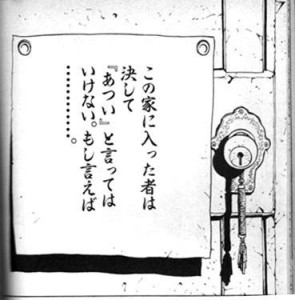 この家に入った者は
決して
『あつい』と言っては
いけない。もし言えば
・・・・・・・・・・・・。